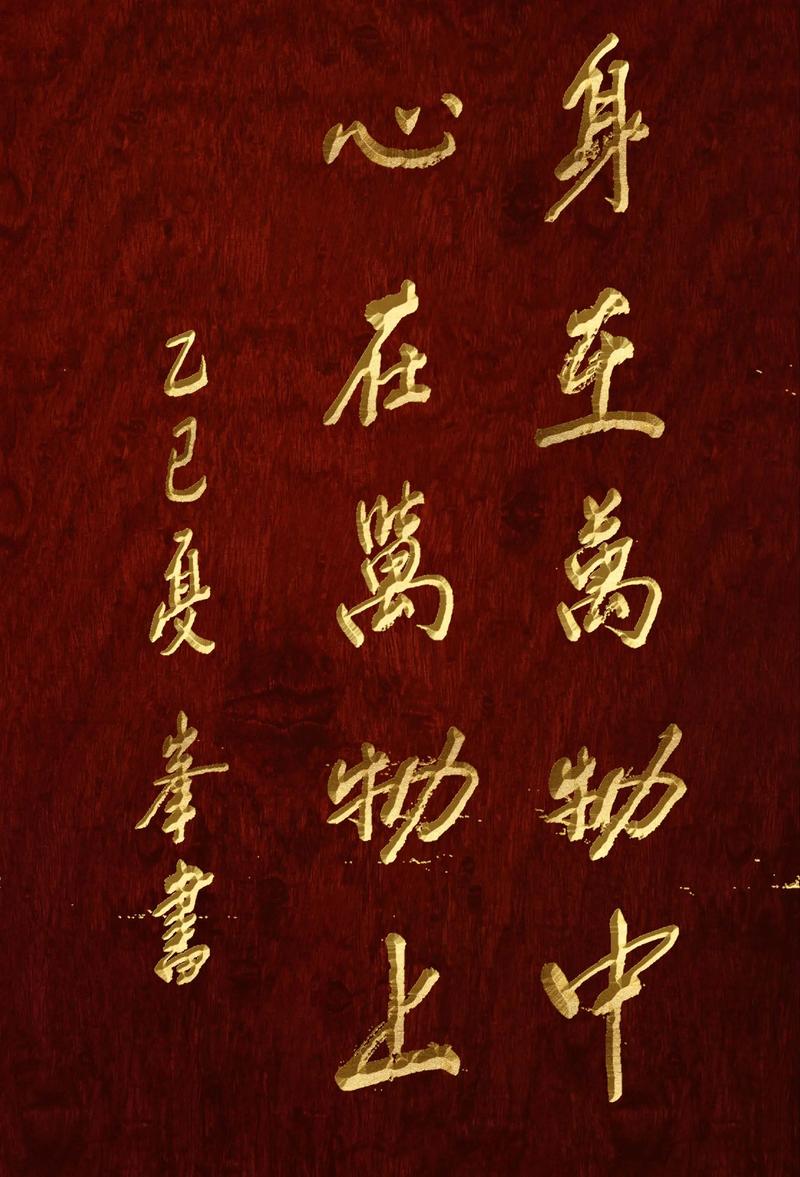 身在萬物中
心在萬物上
乙巳夏 峯書